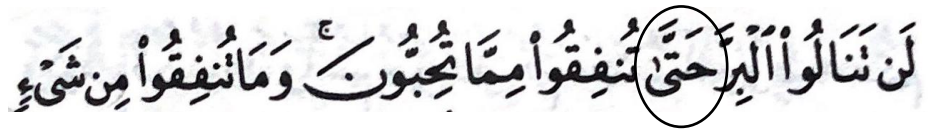 لَن تَنَالُوا۟ ٱلْبِرَّ حَتَّىٰ تُنفِقُوا۟ مِمَّا تُحِبُّونَ ۚ وَمَا تُنفِقُوا۟ مِن شَىْءٍ